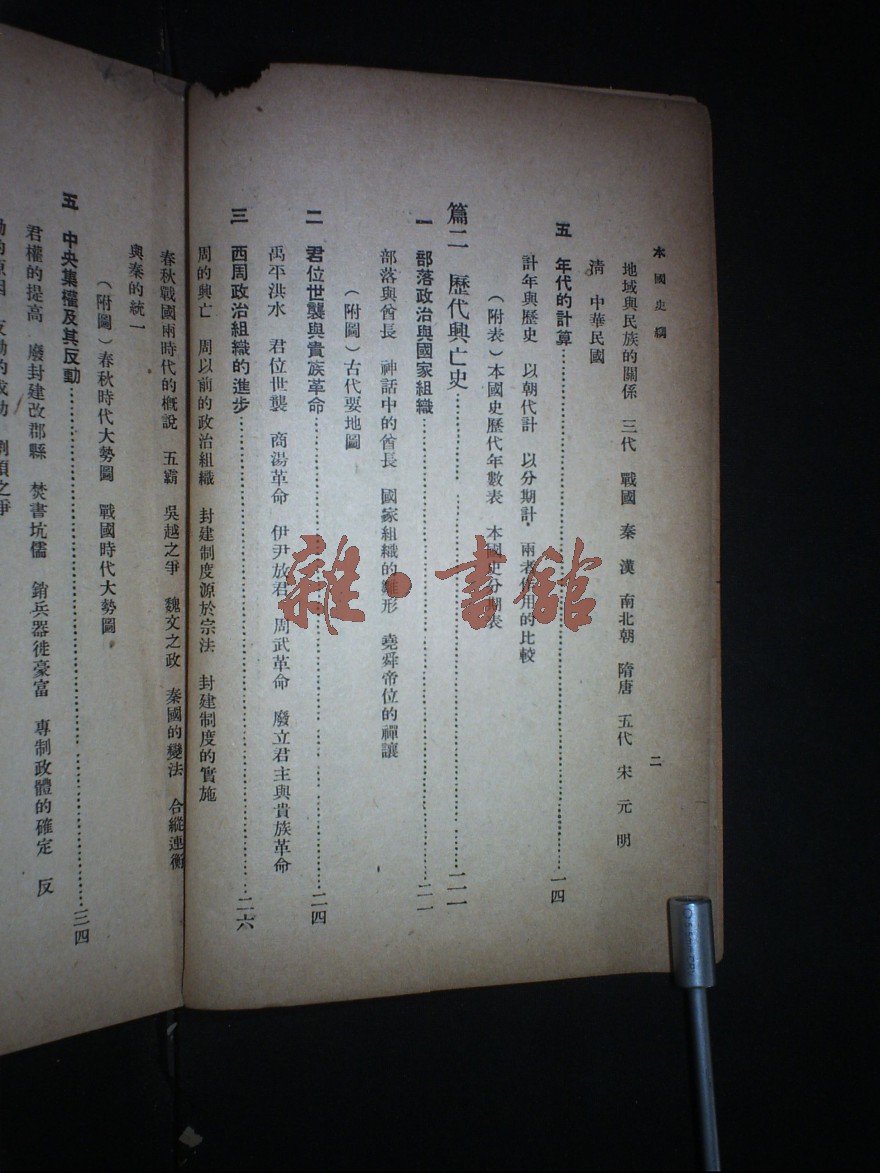 本國史綱 二
地域與民族的關係 三代 戰國 秦 漢 南北朝 隋唐 五代 宋 元 明
清 中華民國
五 年代的計算 一四
計年與歷史 以朝代計 以分期計 兩者 用的比較
(附表)本國史歷代年數表 本國史分期表
篇二 歷代興亡史 二一
一 部落政治與國家組織 二一
部落與酋長 神話中的酋長 國家組織的雛形 堯舜帝位的禪讓
(附圖)古代要地圖
二 君位世襲與貴族革命 二四
禹平洪水 君位世襲 商湯革命 伊尹放君 周武革命 廢立君主與貴族革命
三 西周政治組織的進步 二六
周的興亡 周以前的政治組織 封建制度源於宗法 封建制度的實施
春秋戰國兩時代的概說 五霸 吳越之爭 魏文之政 秦國的變法 合縱連衡
與秦的統一
(附圖)春秋時代大勢圖 戰國時代大勢圖
五 中央集權及其反動 三四
君權的提高 廢封建改郡縣 焚書坑儒 銷兵器徙豪富 專制政體的確定 反
動的原因 反動的成功 劉項之爭
雜·書館